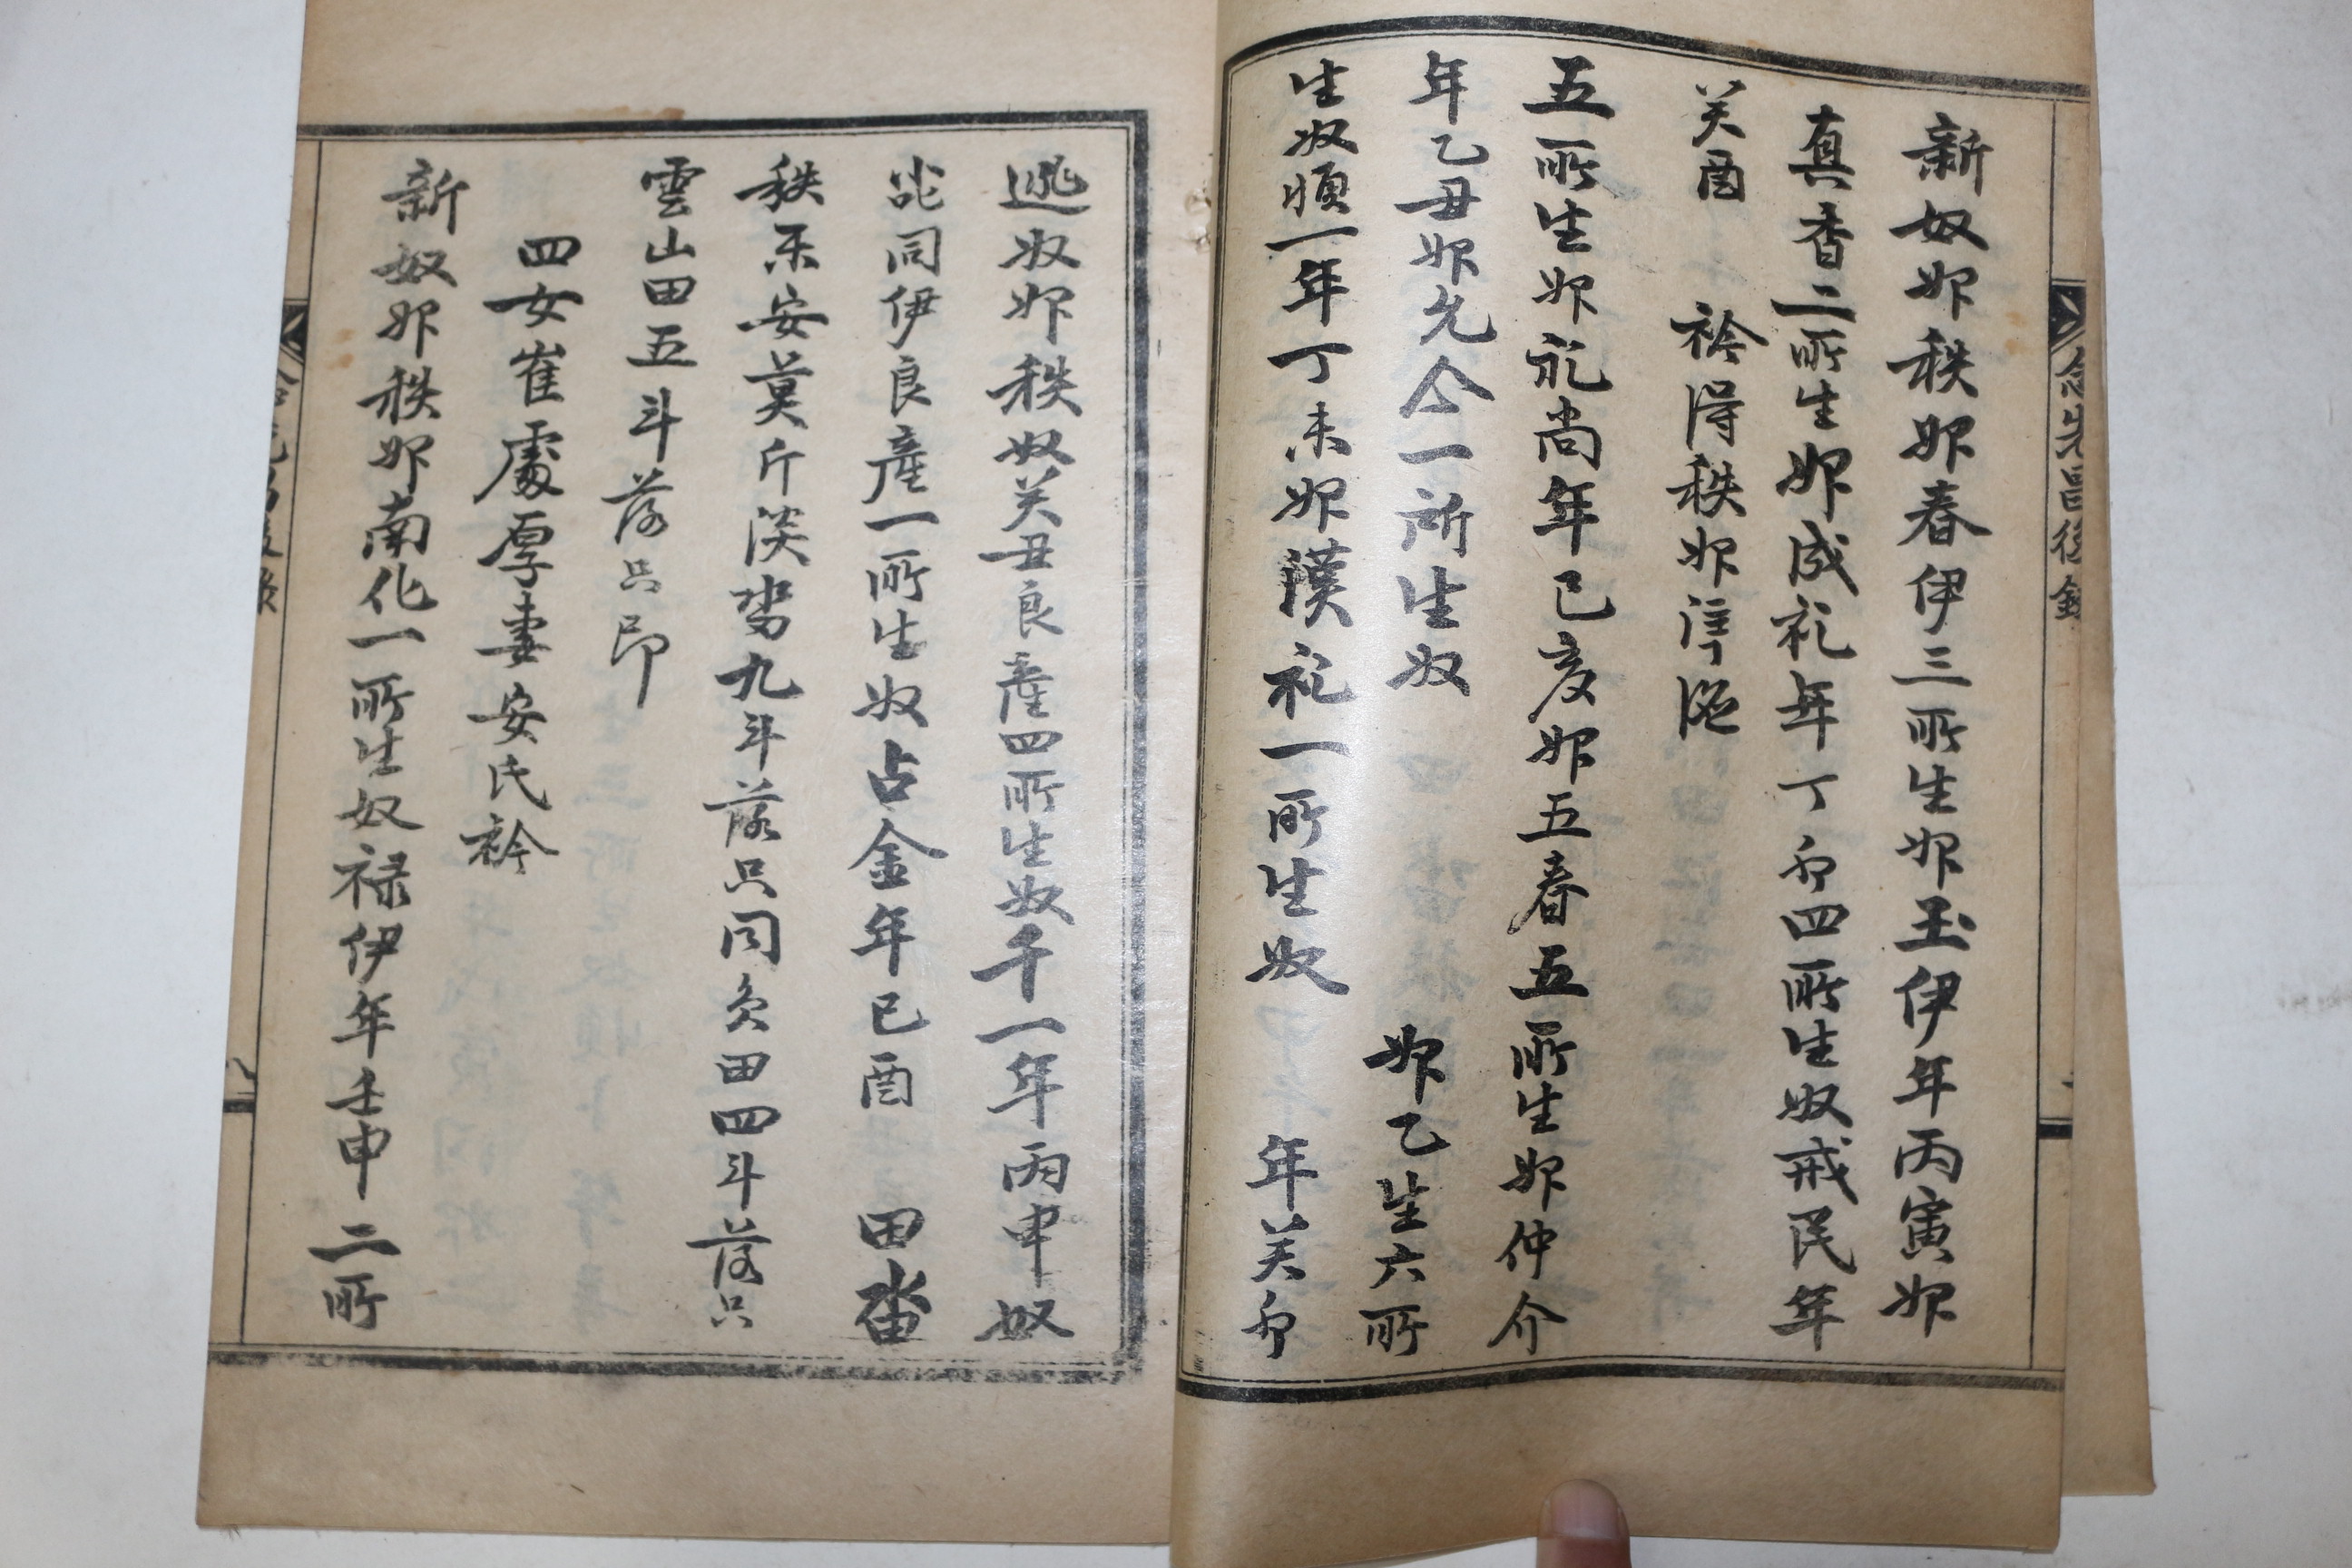 新奴婢秩婢春伊三所生婢玉伊年丙寅婢
真香二所生婢成礼年丁卯四所生奴戒民年
癸酉 衿得秩婢
五所生婢礼尚年己亥婢五春五所生婢仲介
年乙丑婢先今一所生奴 婢乙生六所
生奴順一年丁未婢漢礼一所生奴 年癸卯
逃奴婢秩奴癸丑良産四所生奴千一年丙申奴
同伊良産一所生奴占金年己酉 田畓
秩 安莫斤 畓九斗落只同 田四斗落只
雲山田五斗落只印
四女崔處厚妻安氏衿
新奴婢秩婢南化一所生奴禄伊年壬申二所
念先舀後錄